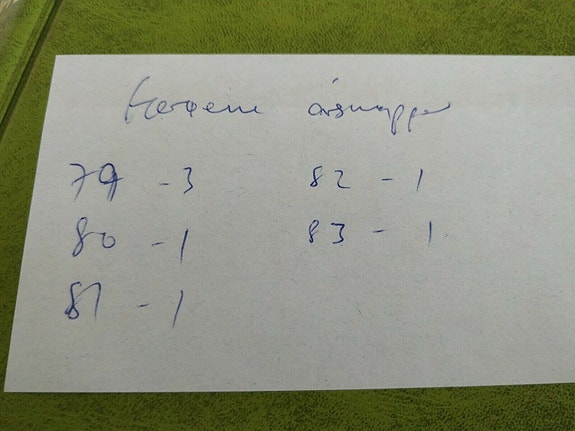 årsmapper
79 - 3 82 - 1
80 - 1 83 - 1
81 - 1